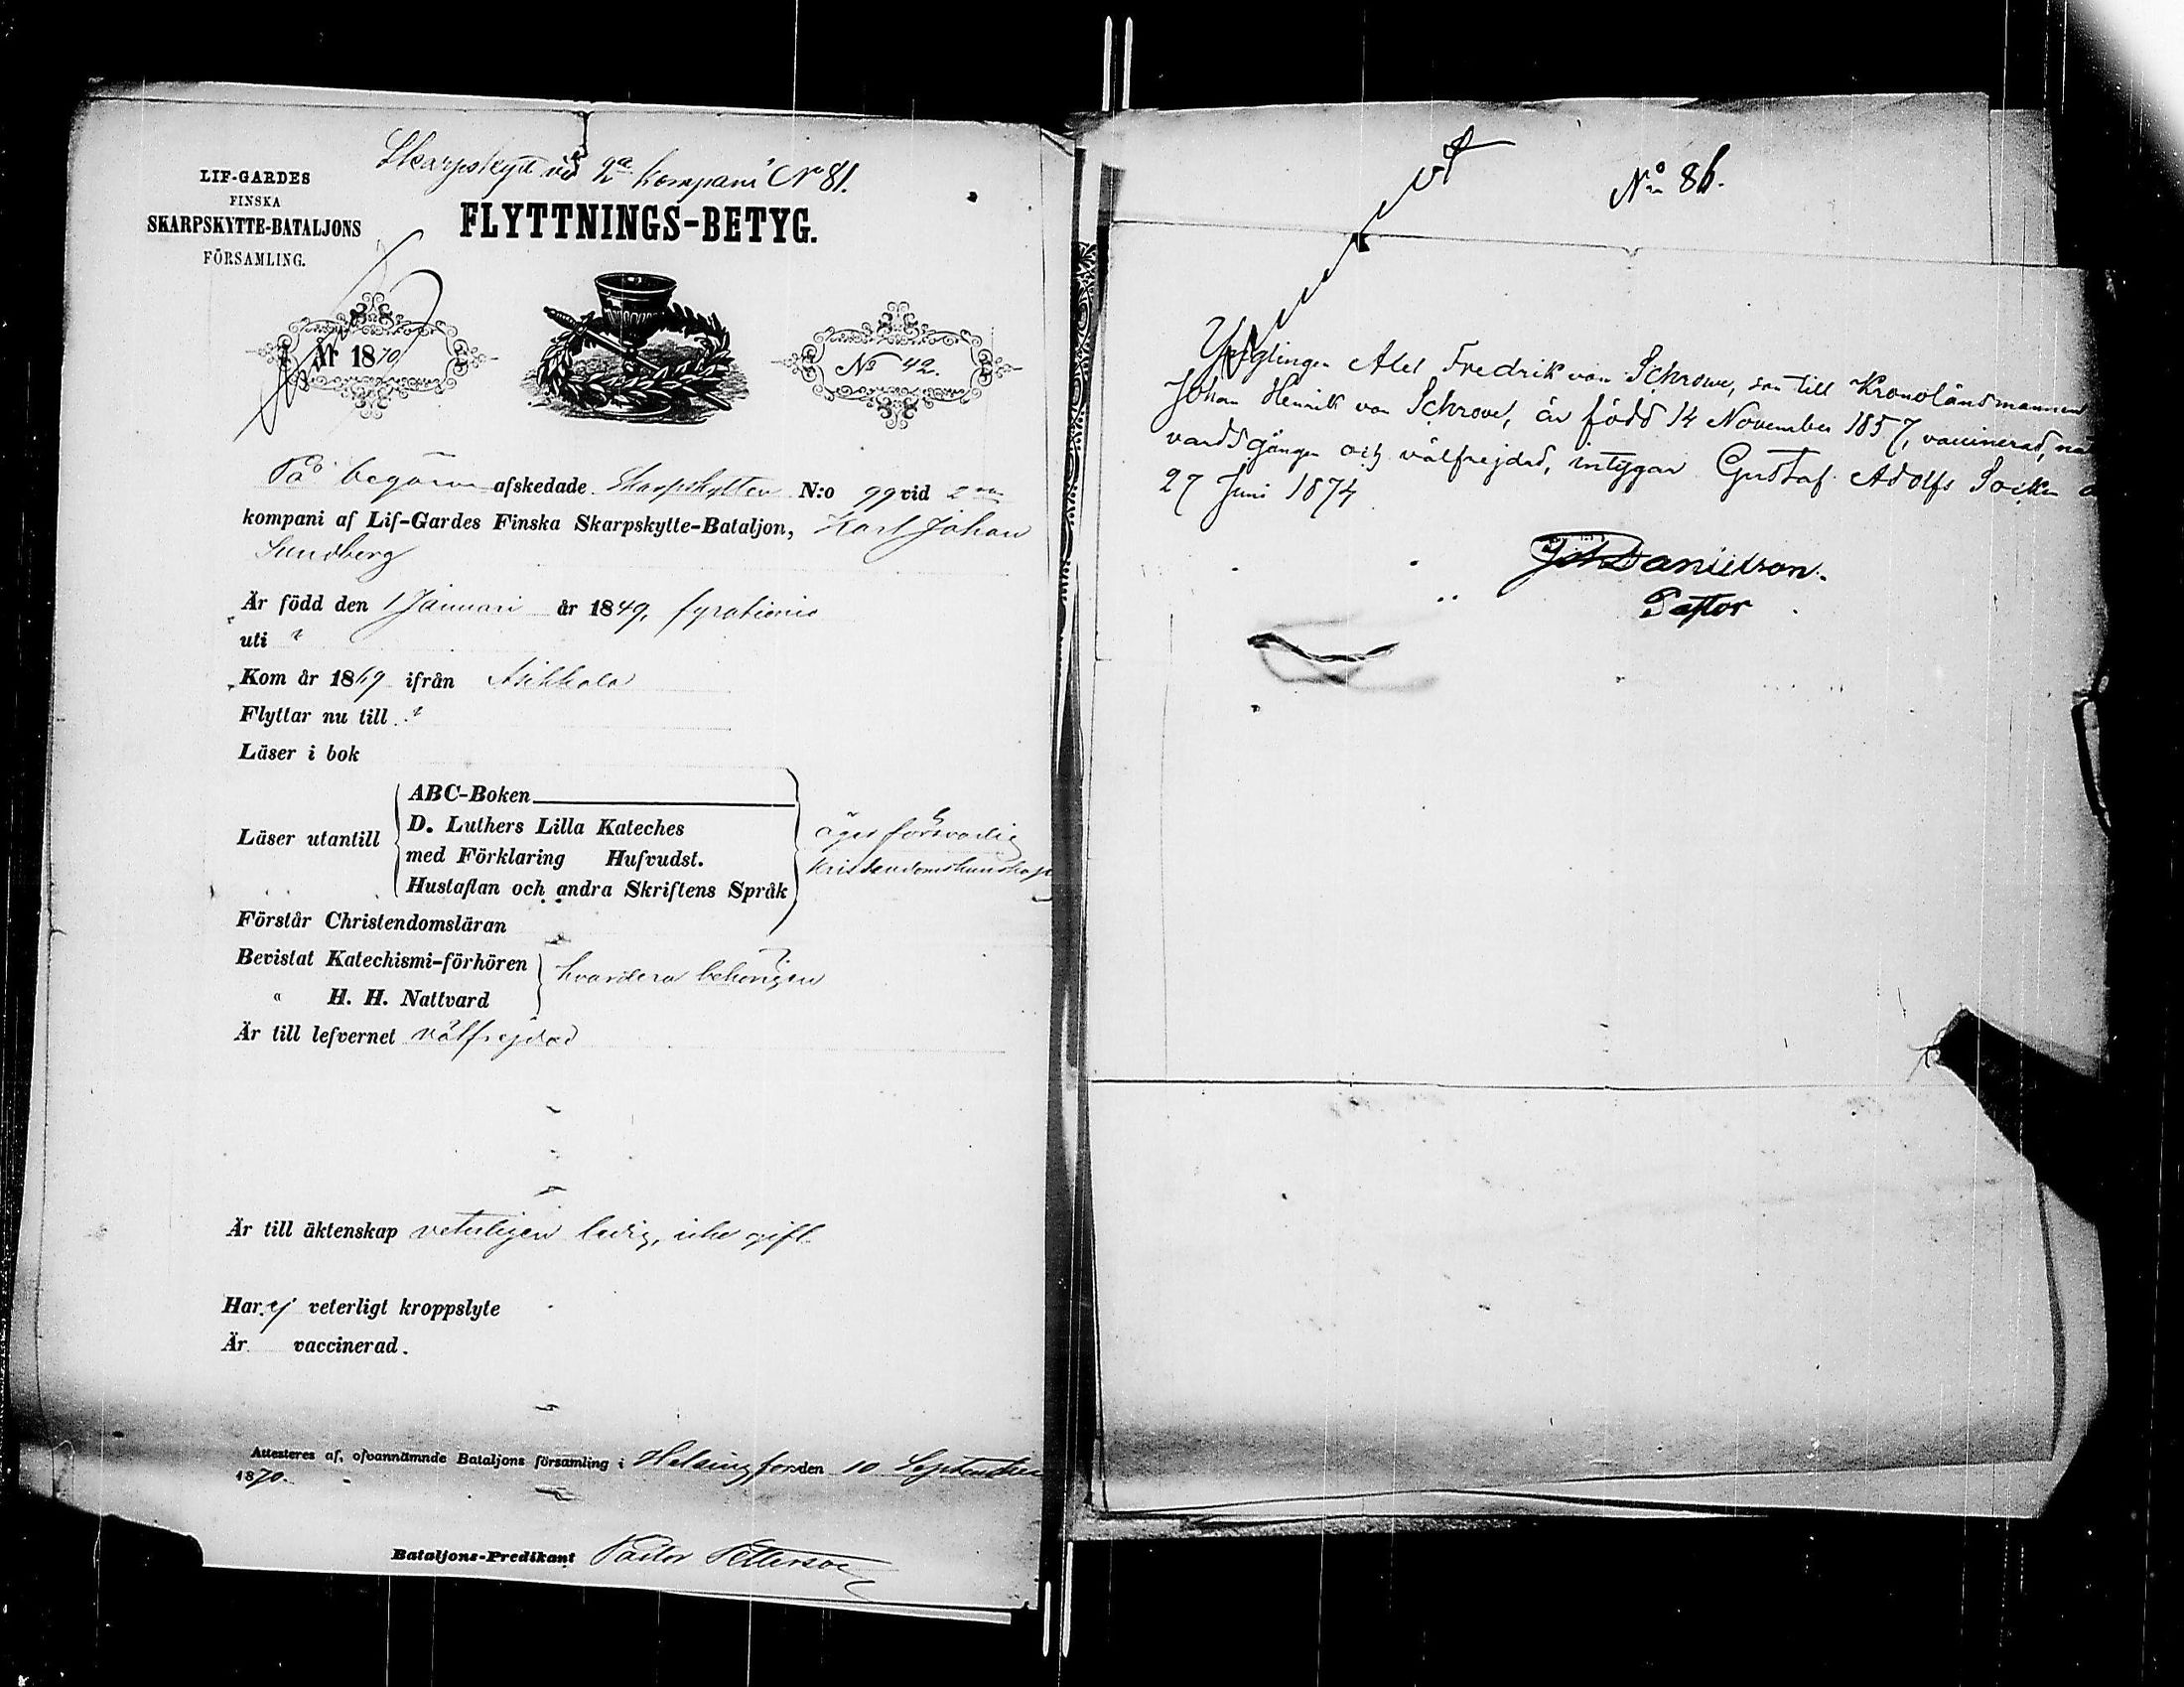 Skarpskytt vid 2a Kompani No 81.
LIF-GARDES
FINSKA
SKARPSKYTTE-BATALJONS
FÖRSAMLING.
FLYTTNINGS-BETYG.
År 1870
No 42.
På begäran afskedade Skarpskytten N:o 99 vid 2dra
kompani af Lif-Gardes Finska Skarpskytte-Bataljon, Karl Johan
Sundberg
Är född den 1 Januari år 1849, fyrationio
uti "
Kom år 1869 ifrån Asikkala
Flyttar nu till "
Läser i bok
Läser utantill
ABC-Boken
D. Luthers Lilla Kateches
med Förklaring Hufvudst.
Hustaflan och andra Skriftens Språk
äger försvarlig
kristendomskunskap
Förstår Christendomsläran
Bevistat Katechismi-förhören
" H. H. Nattvard
hvardera behörigen
Är till lefvernet välfrejdad
Är till äktenskap veterligen ledig, icke gift
Har ej veterligt kroppslyte
Är vaccinerad.
Attesteres af, ofvannämnde Bataljons församling i Helsingfors den 10 September
1870.
Bataljons-Predikant Pastor Petterson
No 86.
Ynglingen Axel Fredrik von Schrowe, son till Kronolänsmannen
Johan Henrik von Schrowe, är född 14 November 1857, vaccinerad, natt
vardsgången och välfrejdad, intygar Gustaf Adolfs Socken
27 Juni 1874
Joh Danielson.
Pastor